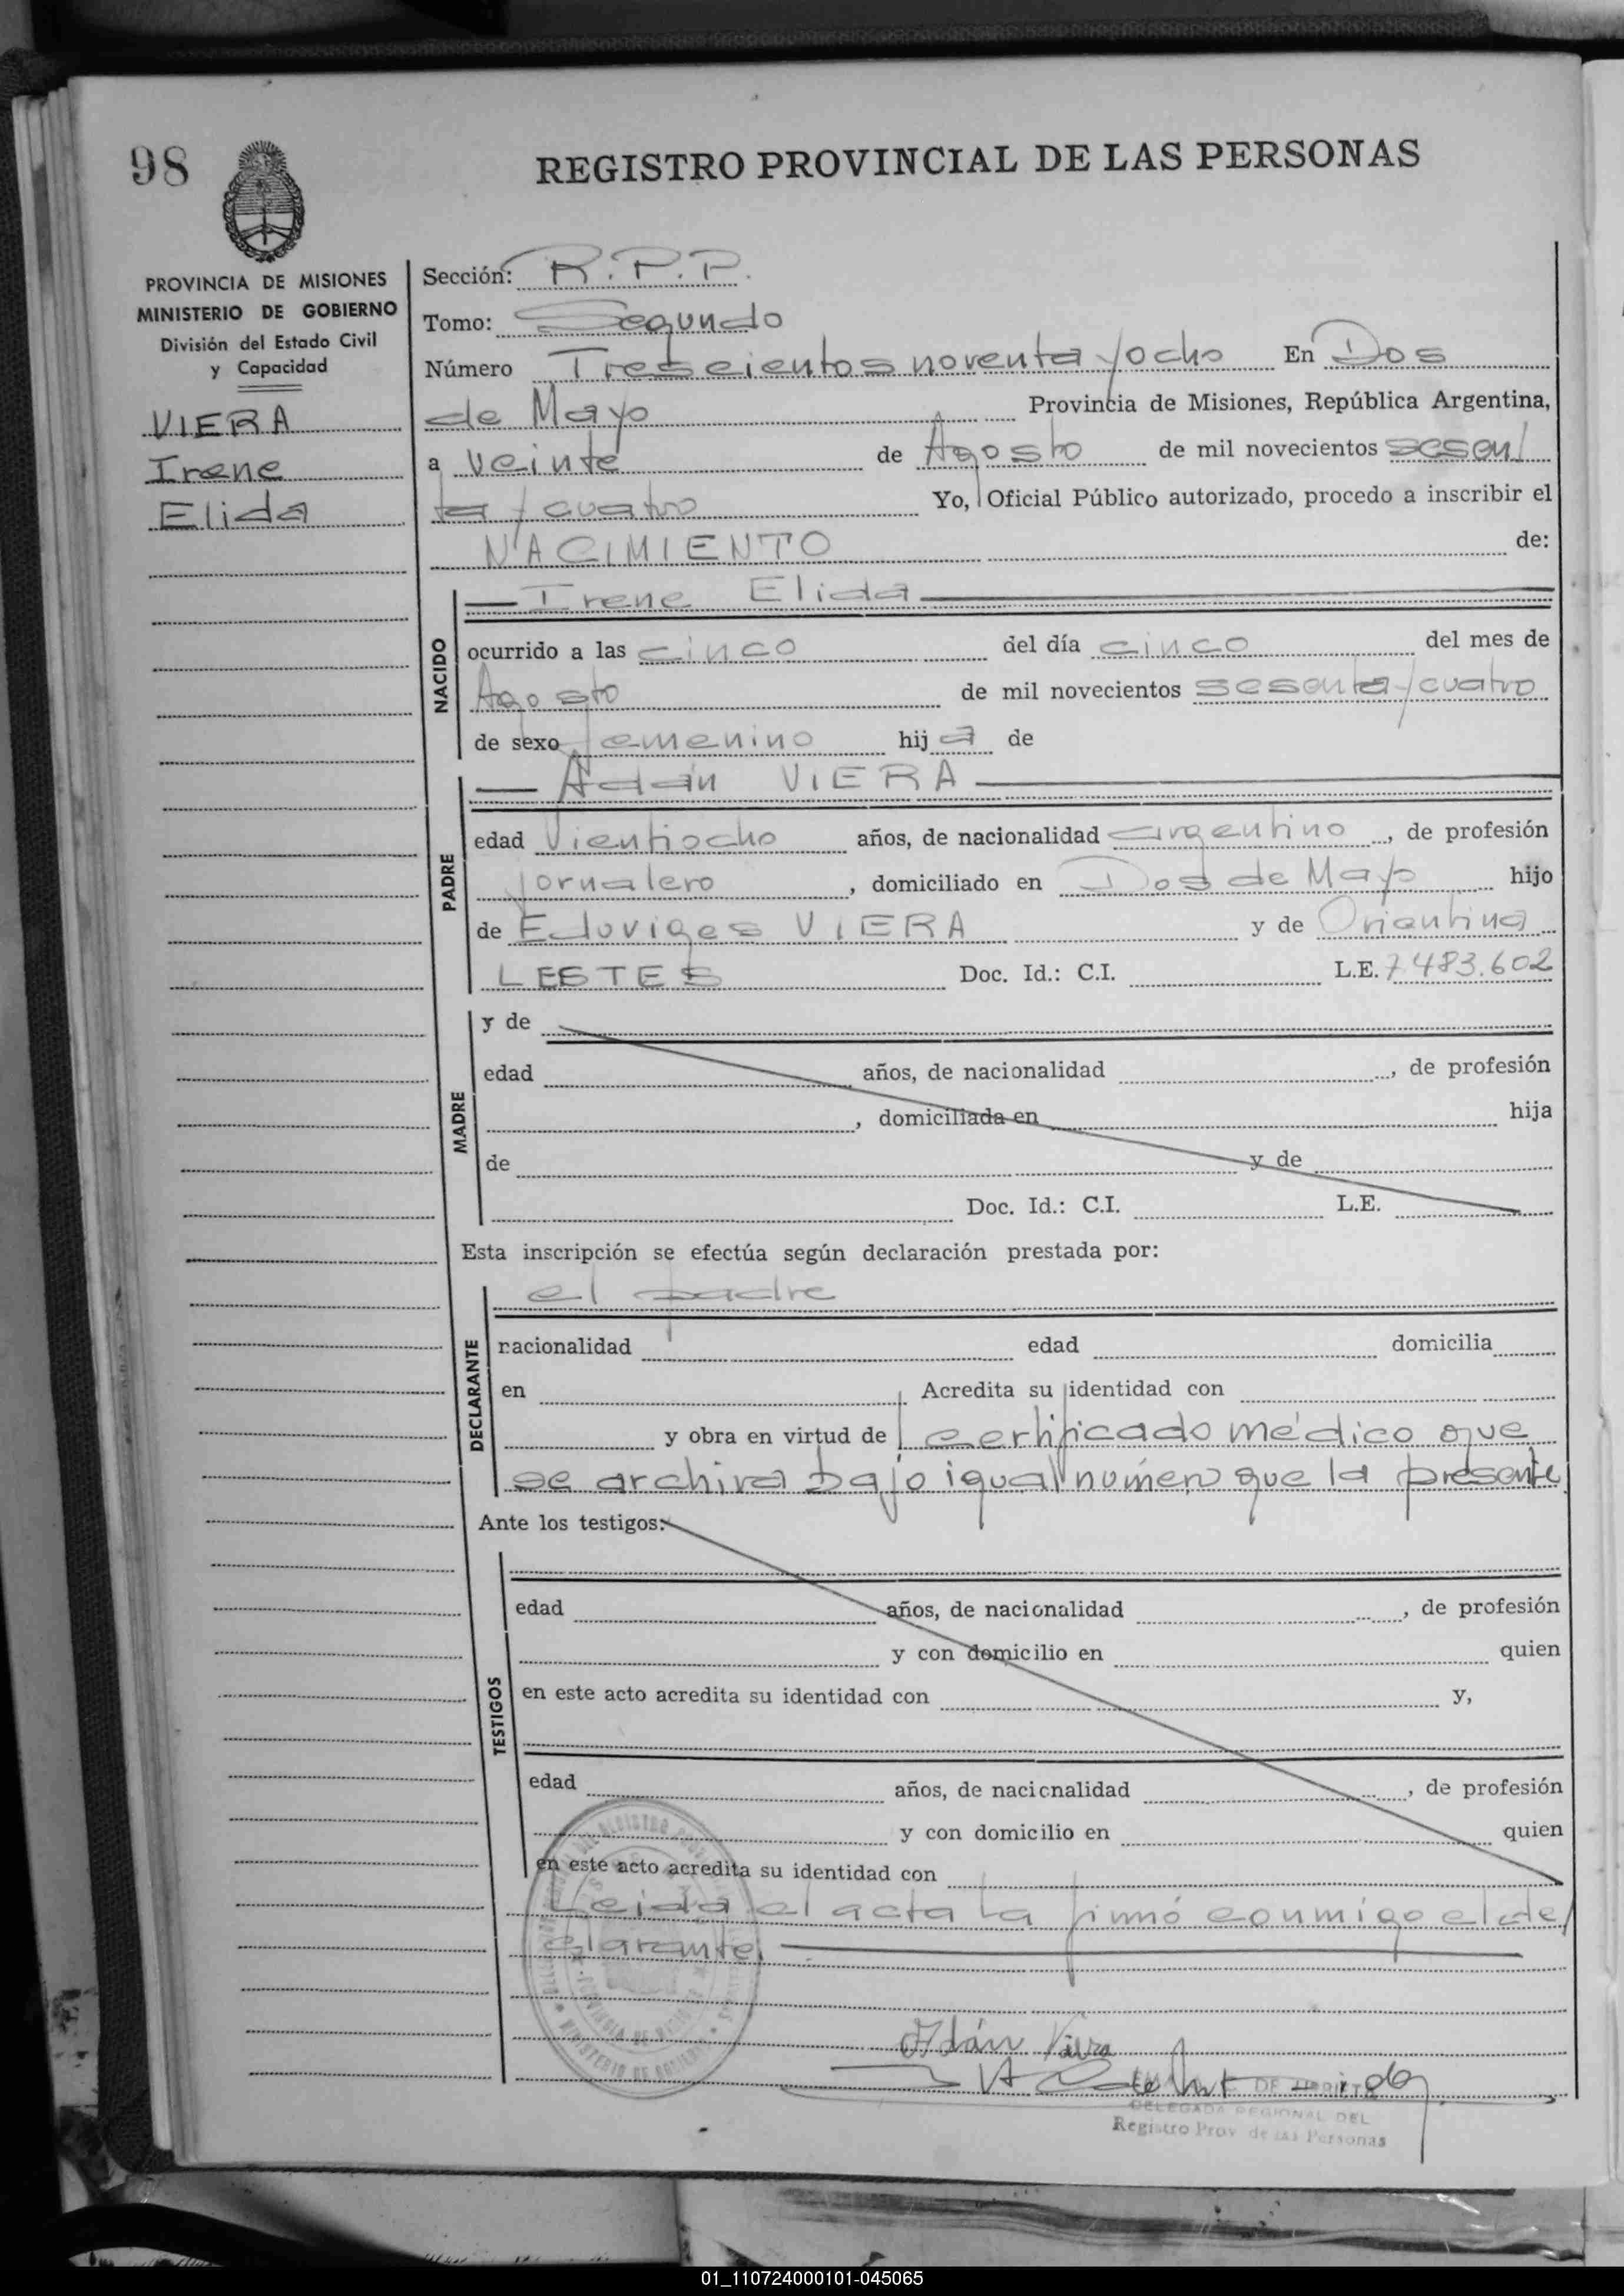 98
REGISTRO PROVINCIAL DE LAS PERSONAS
PROVINCIA DE MISIONES
MINISTERIO DE GOBIERNO
División del Estado Civil
y Capacidad
VIERA
Irene
Elida
Sección: R.P.P.
Tomo: Segundo
Número Trescientos noventa y ocho En Dos
de Mayo Provincia de Misiones, República Argentina,
a veinte de Agosto de mil novecientos sesen/
ta y cuatro Yo, Oficial Público autorizado, procedo a inscribir el
NACIMIENTO de:
NACIDO
Irene Elida
ocurrido a las cinco del día cinco del mes de
Agosto de mil novecientos sesenta y cuatro
de sexo femenino hija de
PADRE
Adán VIERA
edad Vientiocho años, de nacionalidad argentino, de profesión
jornalero, domiciliado en Dos de Mayo hijo
de Eduviges VIERA y de Orientina
LESTES Doc. Id.: C.I. L.E. 7.483.602
MADRE
y de
edad años, de nacionalidad , de profesión
, domiciliada en hija
de y de
Doc. Id.: C.I. L.E.
Esta inscripción se efectúa según declaración prestada por:
DECLARANTE
el padre
nacionalidad edad domicilia
en Acredita su identidad con
y obra en virtud de certificado médico que
se archiva bajo igual número que la presente
Ante los testigos:
TESTIGOS
edad años, de nacionalidad , de profesión
y con domicilio en quien
en este acto acredita su identidad con y,
edad años, de nacionalidad , de profesión
y con domicilio en quien
en este acto acredita su identidad con
Leida el acta la firmó conmigo el de/
clarante.
Adán Viera
DELEGADA REGIONAL DEL
Registro Prov. de las Personas
01_110724000101-045065